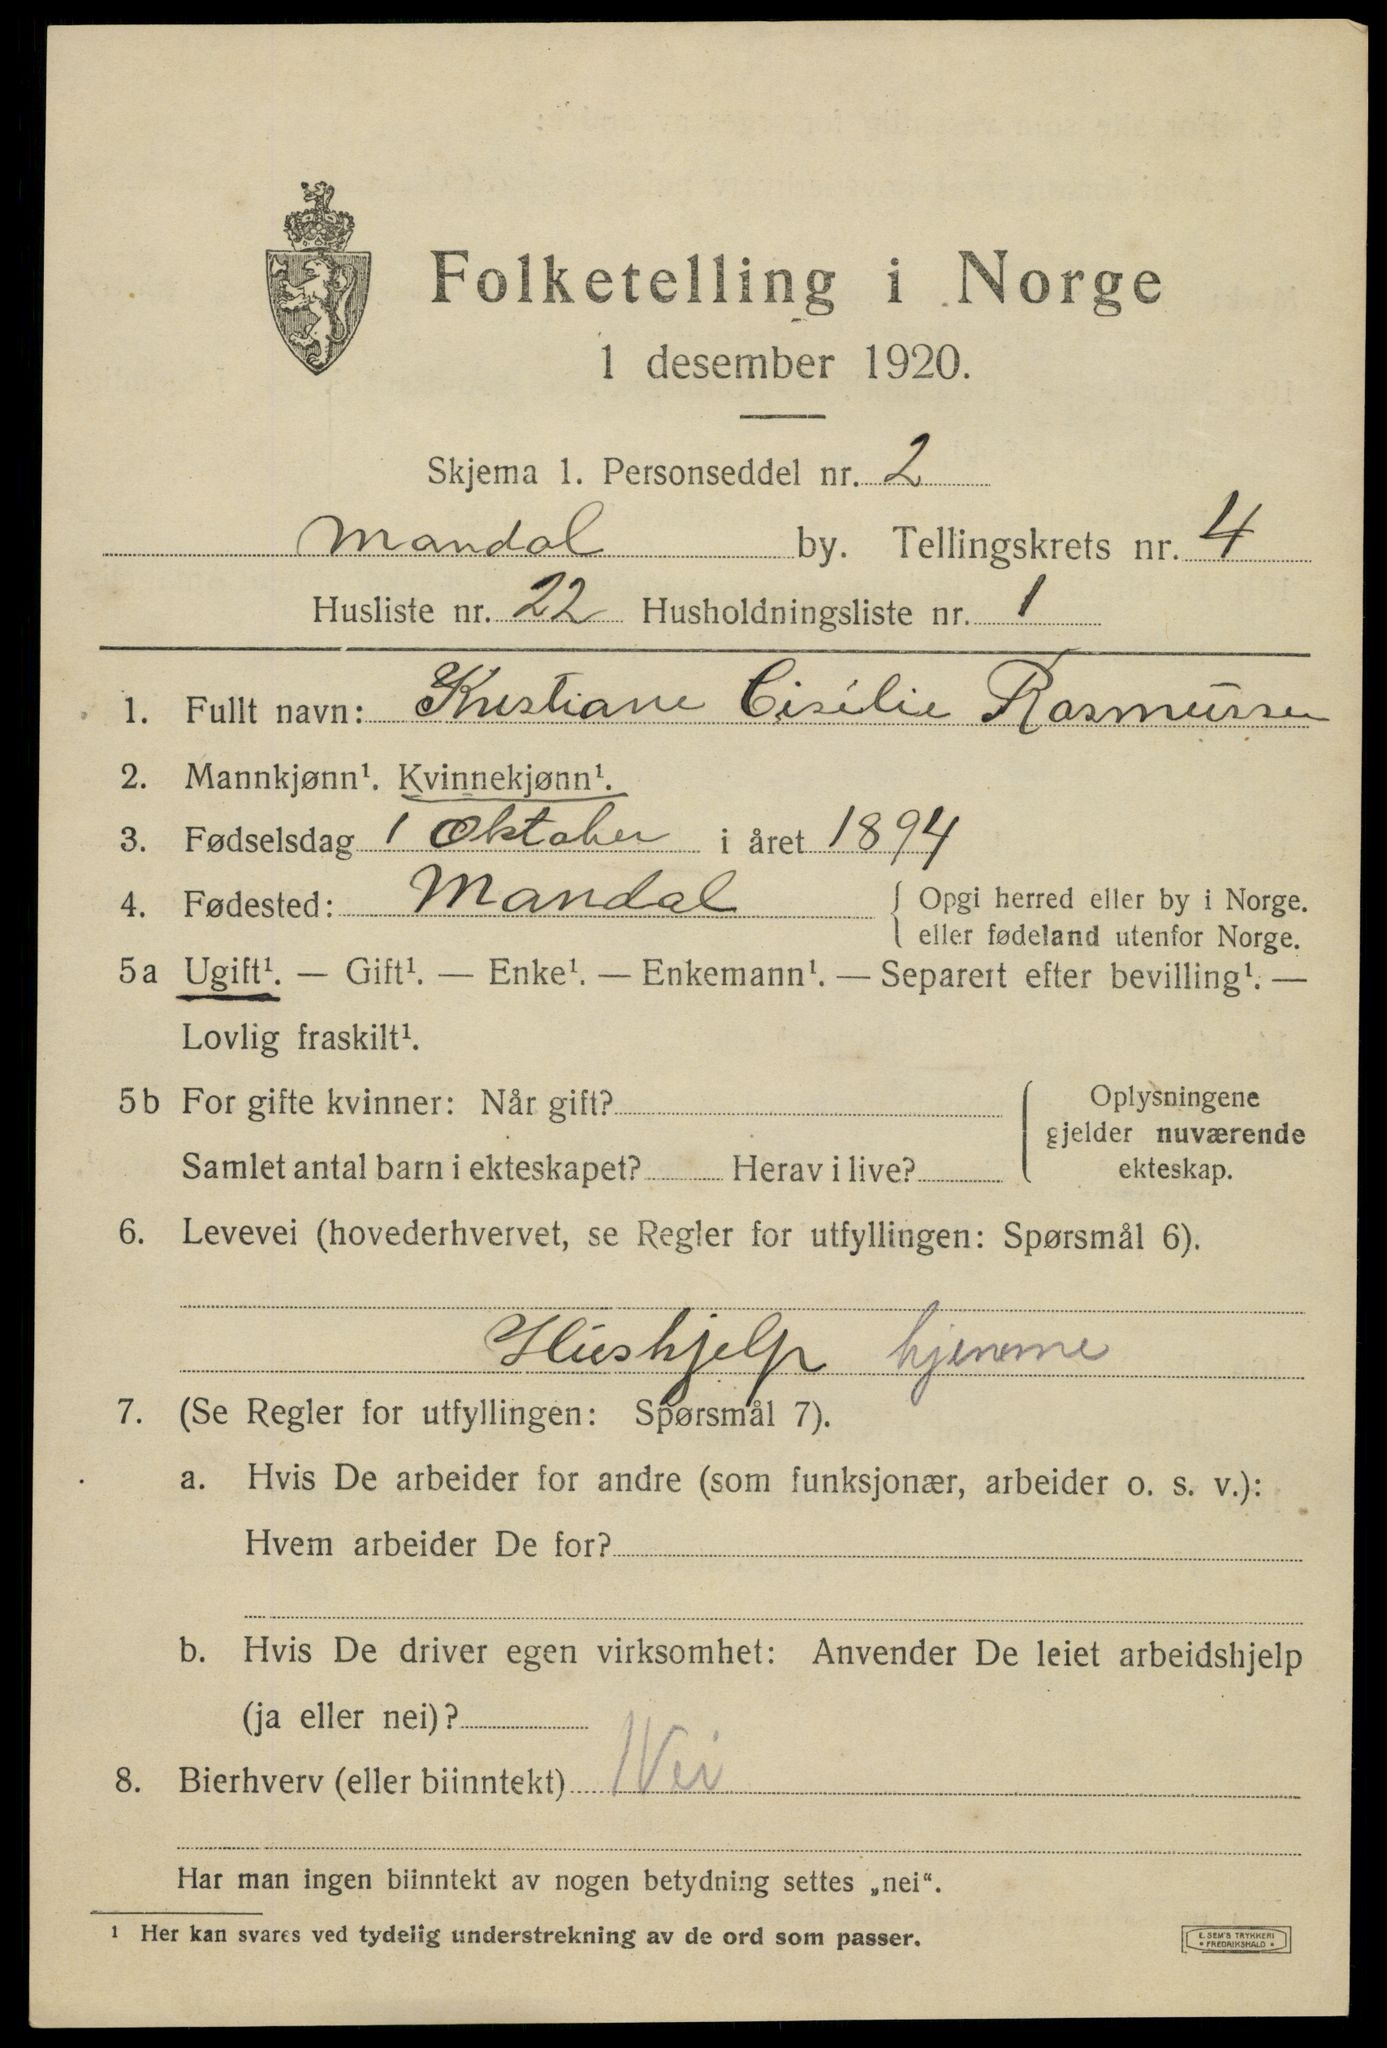 Folketelling i Norge
1 desember 1920.
Skjema 1. Personseddel nr. 2
Mandal by. Tellingskrets nr. 4
Husliste nr. 22 Husholdningsliste nr. 1
1. Fullt navn: Kristiane Cisilie Rasmussen
2. Mannkjønn¹. Kvinnekjønn¹.
3. Fødselsdag 1 Oktober i året 1894
4. Fødested: Mandal { Opgi herred eller by i Norge.
eller fødeland utenfor Norge.
5a Ugift¹. — Gift¹. — Enke¹. — Enkemann¹. — Separert efter bevilling¹. —
Lovlig fraskilt¹.
5b For gifte kvinner: Når gift? { Oplysningene
gjelder nuværende
Samlet antal barn i ekteskapet? Herav i live? ekteskap.
6. Levevei (hovederhvervet, se Regler for utfyllingen: Spørsmål 6).
Hushjelp hjemme
7. (Se Regler for utfyllingen: Spørsmål 7).
a. Hvis De arbeider for andre (som funksjonær, arbeider o. s. v.):
Hvem arbeider De for?
b. Hvis De driver egen virksomhet: Anvender De leiet arbeidshjelp
(ja eller nei)?
8. Bierhverv (eller biinntekt) Nei
Har man ingen biinntekt av nogen betydning settes „nei“.
¹ Her kan svares ved tydelig understrekning av de ord som passer.
E. SEM'S TRYKKERI
• FREDRIKSHALD •